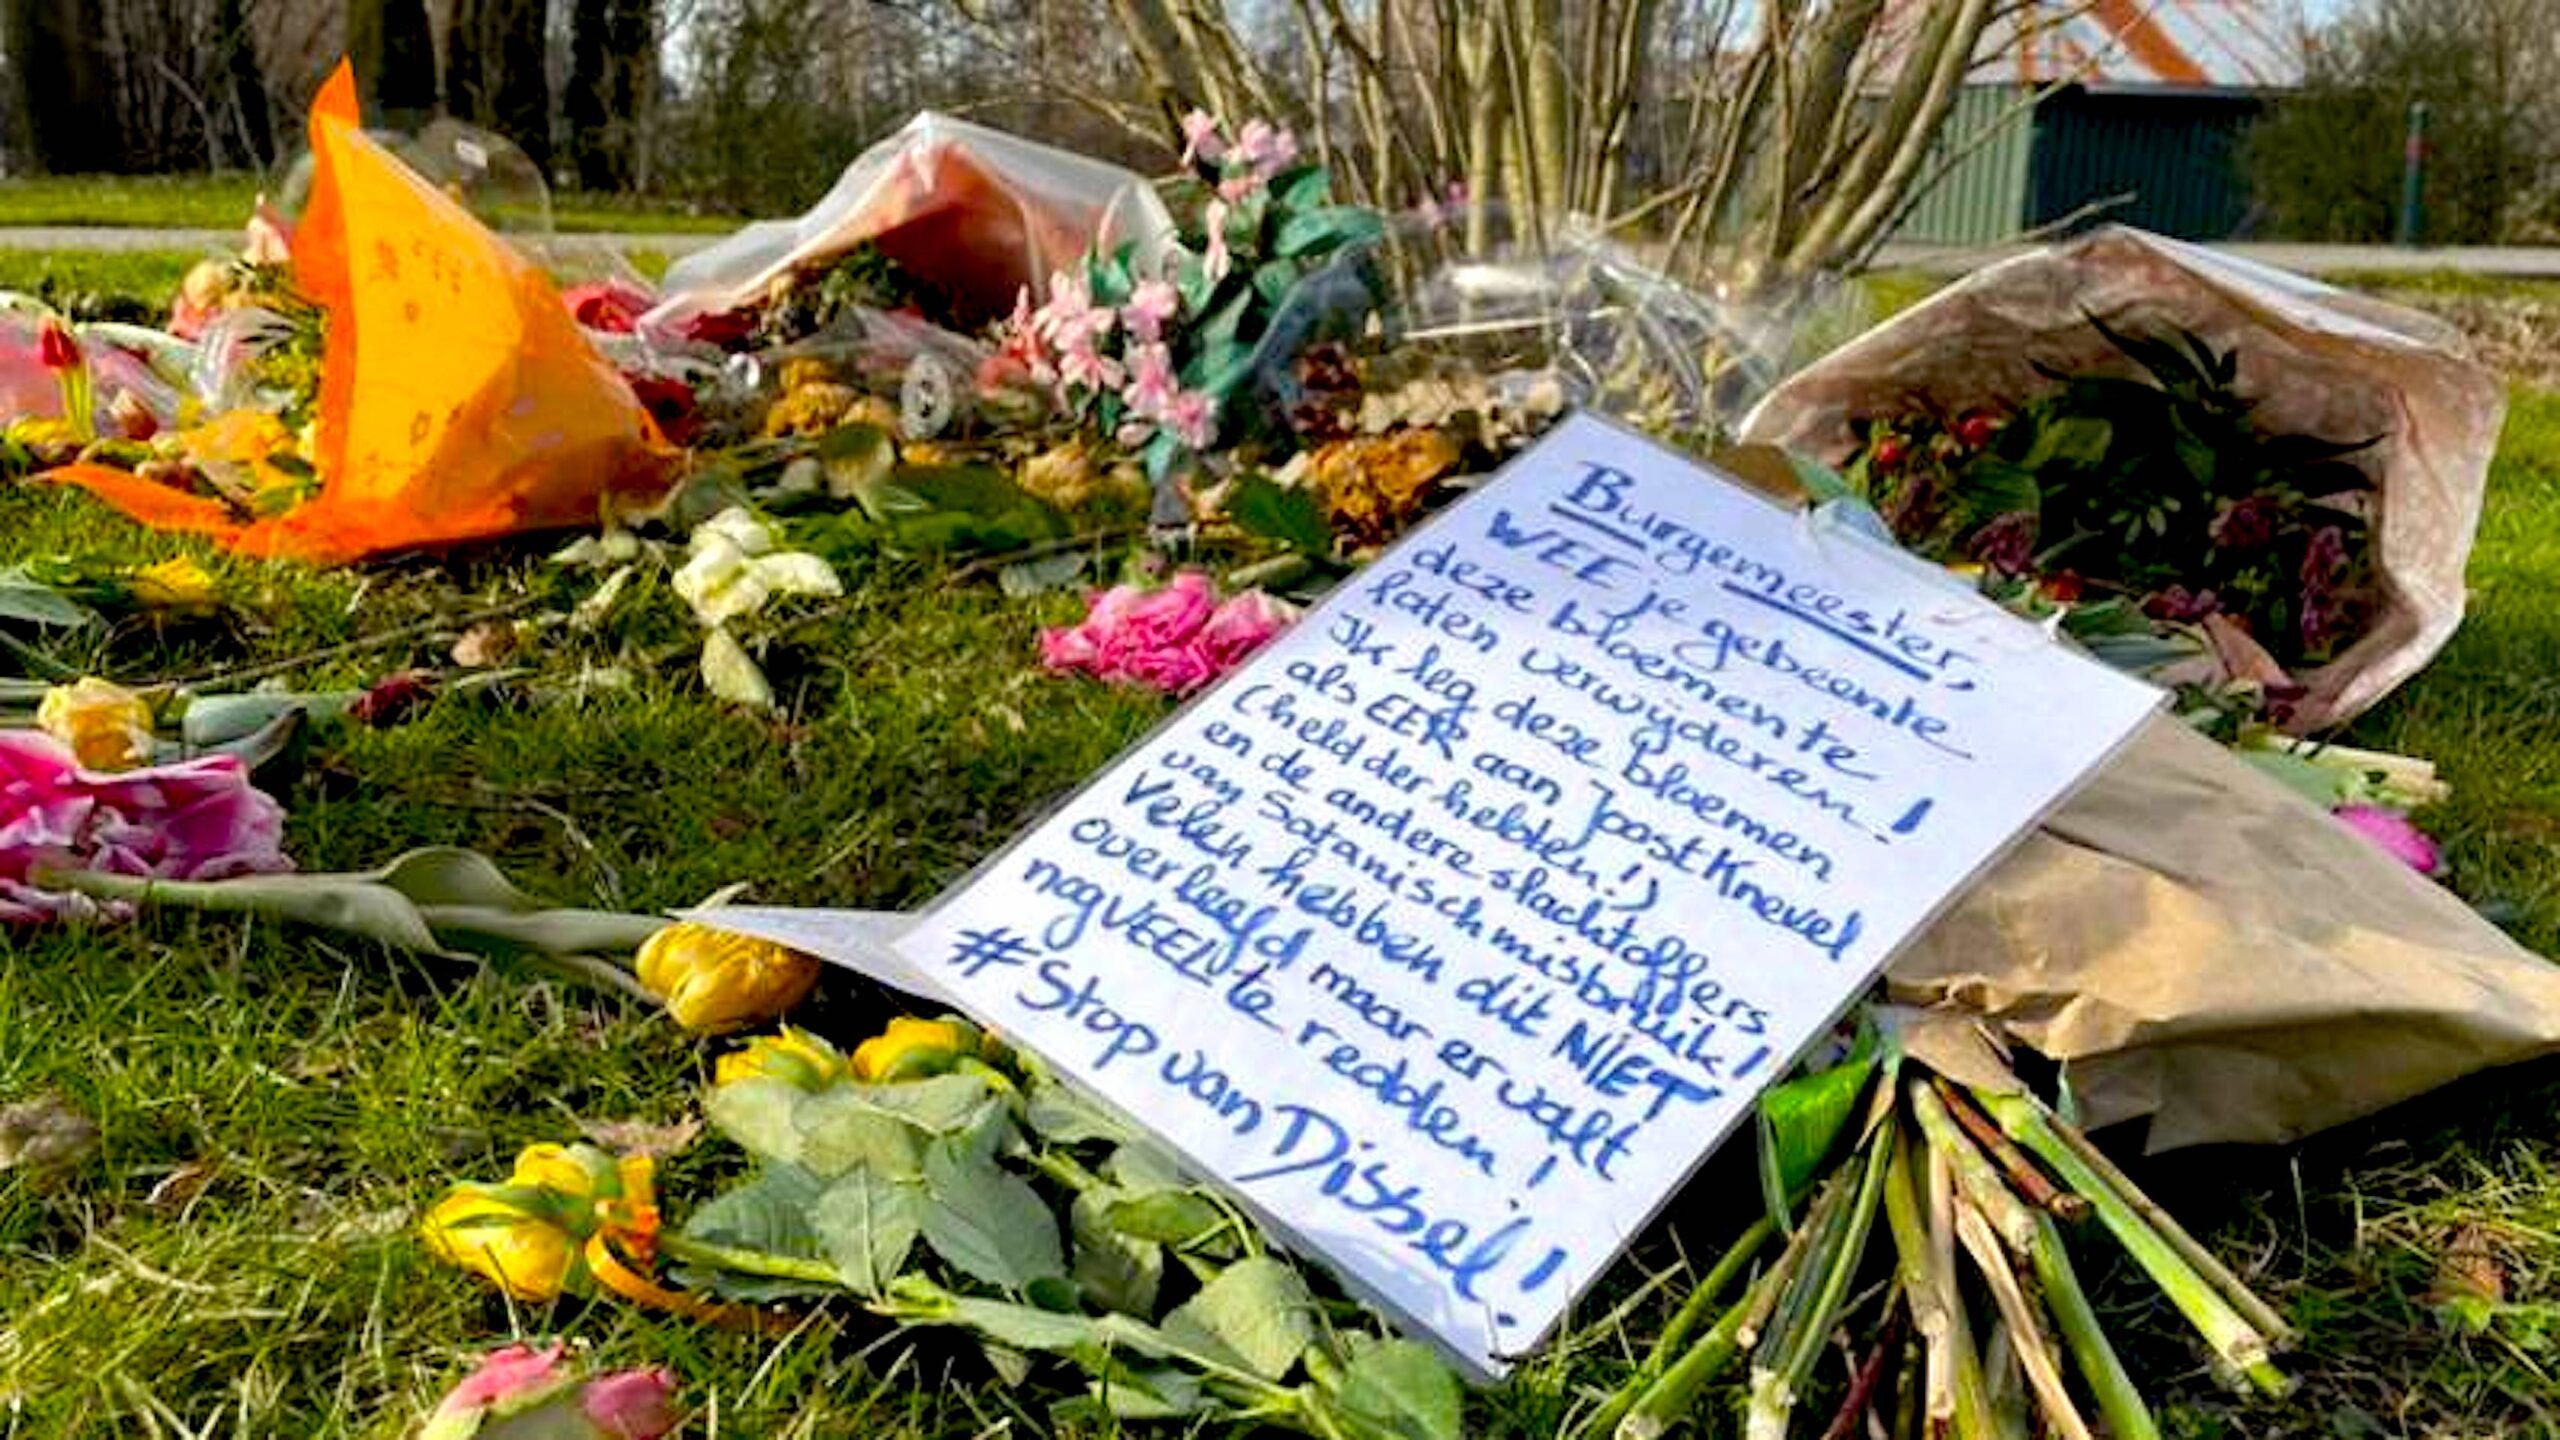 Burgemeester,
WEE je gebeente
deze bloemen te
laten verwijderen!
Ik leg deze bloemen
als EER aan Joost Knevel
(held der helden!)
en de andere slachtoffers
van Satanisch misbruik!
Velen hebben dit NIET
overleefd maar er valt
nog VEEL te redden!
#Stop van Dissel!